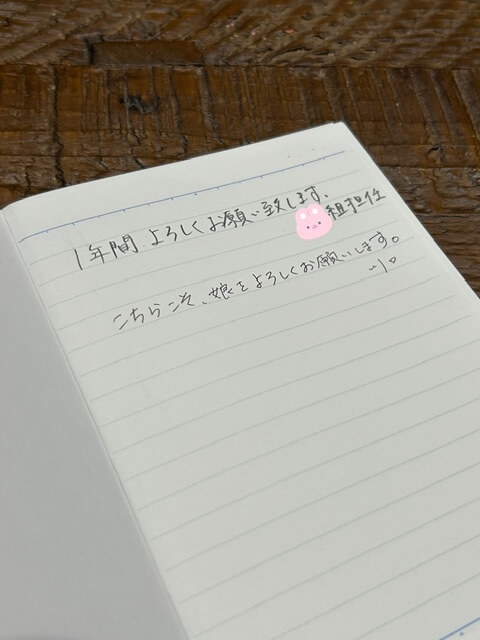 1年間 よろしくお願い致します。
組担任
こちらこそ、娘をよろしくお願いします。